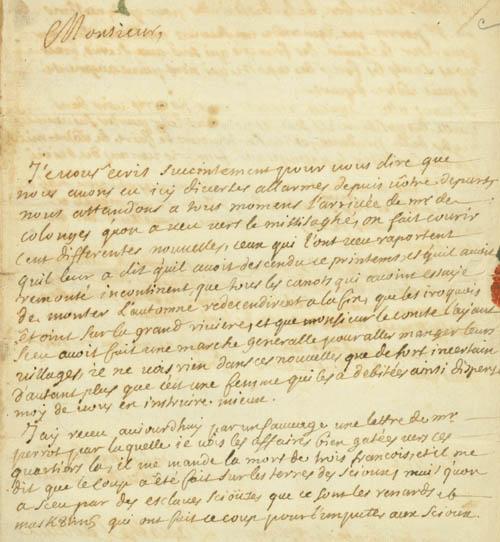 Monsieur,
Je vous ecris succintement pour vous dire que
nous avons eu icy diverses allarmes depuis vôtre depart,
nous attandons a tous momens l'arrivée de mr de
colonges qu'on a veu vers le missisaghé, on fait courir
cent differentes nouvelles, ceux qui l'ont veu raportent
quil leur a dit quil avoit descendu ce printemps, et quil avoit
remonté incontinent, que tous les canots qui avoint essaié
de monter L'automne redecendirent a la fin, que les iroquois
étoint sur la grand riviere, et que monsieur le comte l'ajant
sceu avoit fait une marche generalle pour aller manger leurs
villages, je ne vois rien dans ces nouvelles que de fort incertain
d'autant plus que c'est une femme qui les a debitées ainsi
moy de vous en instruire mieux.
J'ay receu aujourdhuy par un sauvage une lettre de mr
perrot par laquelle je vois les affaires bien gatées vers ces
quartiers la, il me mande la mort de trois francois, et il me
dit que le coup a été fait sur les terres des scioux, mais quon
a sceu par des esclaves scioutes que ce sont les renards et
mask8tins qui ont fait ce coup pour l'imputer aux scioux.